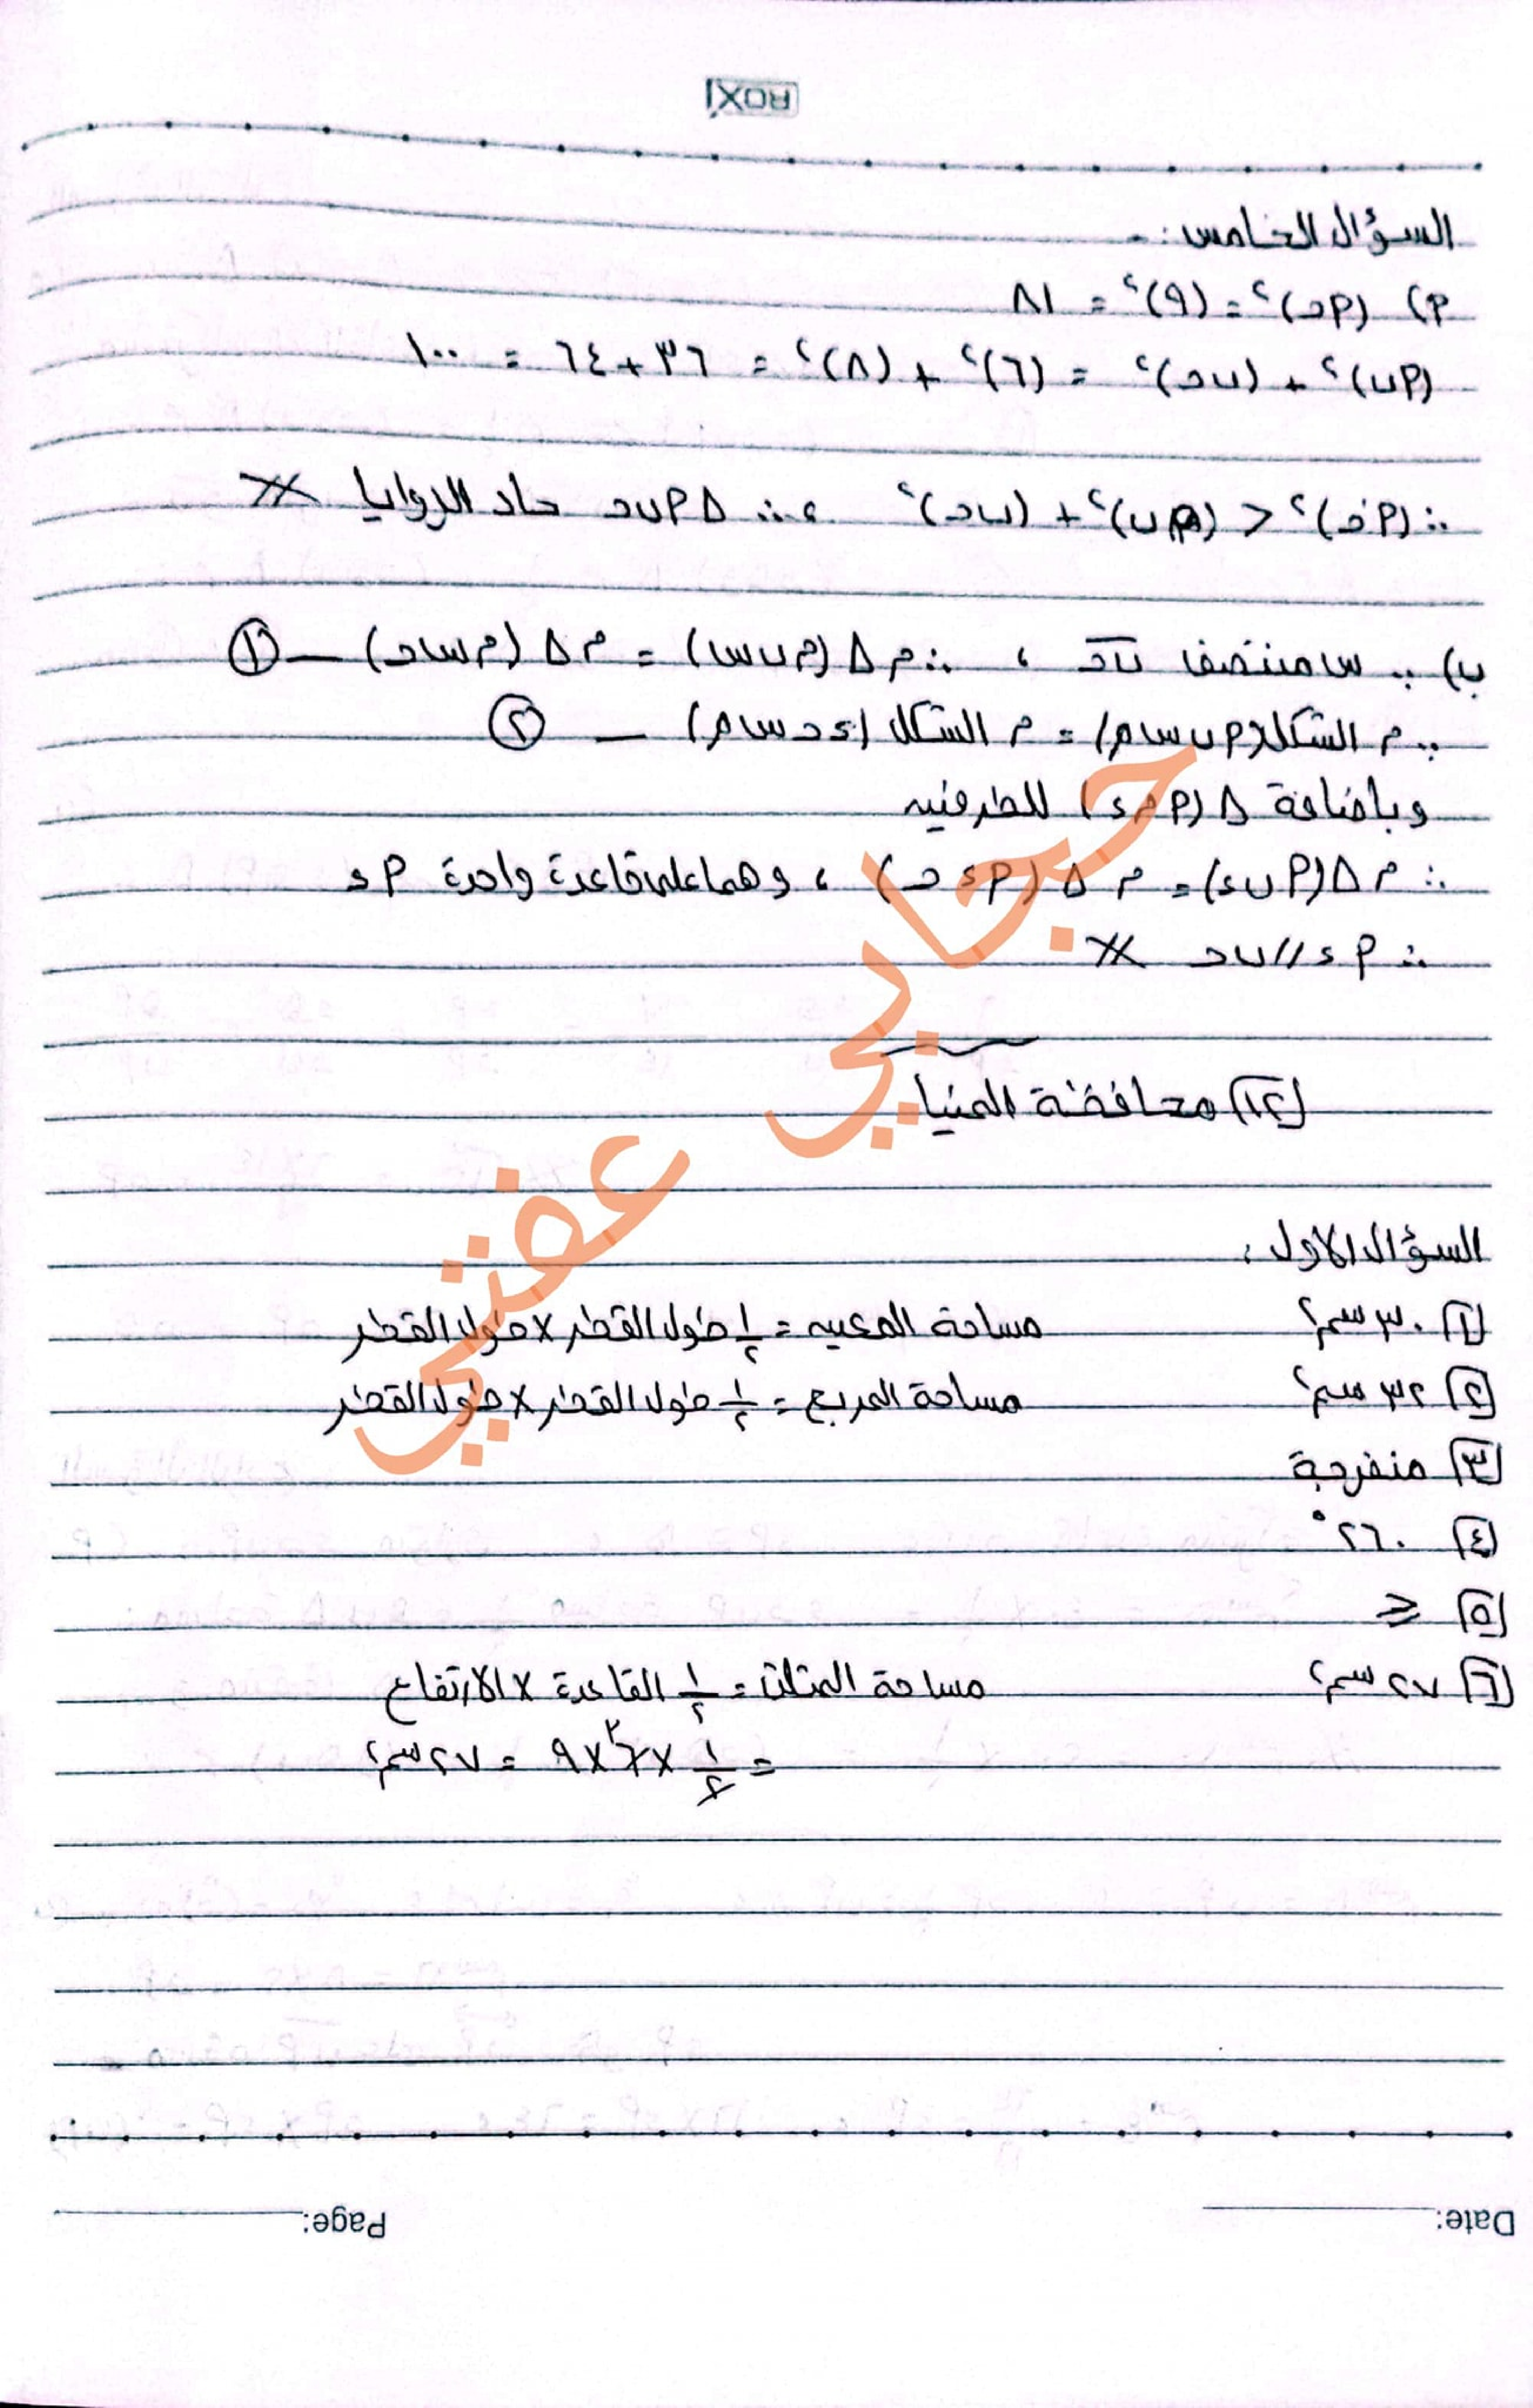 ROXI
السؤال الخامس :-
أ) (أحـ)² = (٩)² = ٨١
(أب)² + (بحـ)² = (٦)² + (٨)² = ٣٦ + ٦٤ = ١٠٠
∴ (أحـ)² < (أب)² + (بحـ)² ، ∴ Δ أبحـ حاد الزوايا
ب) ∵ س منتصف بحـ ، ∴ م Δ (م ب س) = م Δ (م س حـ) — ①
∵ م الشكل (أ ب س م) = م الشكل (ء حـ س م) — ②
وباضافة Δ (أ م ء) للطرفين
∴ م Δ (أ ب ء) = م Δ (أ ء حـ) ، وهما على قاعدة واحدة أ ء
∴ أ ء // ب حـ
١٢) محافظة المنيا
السؤال الاول :
١) ٣٠ سم² مساحة المعين = ١/٢ طول القطر × طول القطر
٢) ٣٢ سم² مساحة المربع = ١/٢ طول القطر × طول القطر
٣) منفرجة
٤) ٢٦٠°
٥) ≥
٦) ٢٧ سم² مساحة المثلث = ١/٢ القاعدة × الارتفاع
= ١/٢ × ٦ ٣ × ٩ = ٢٧ سم²
حجابي عفتي
Date:
Page: